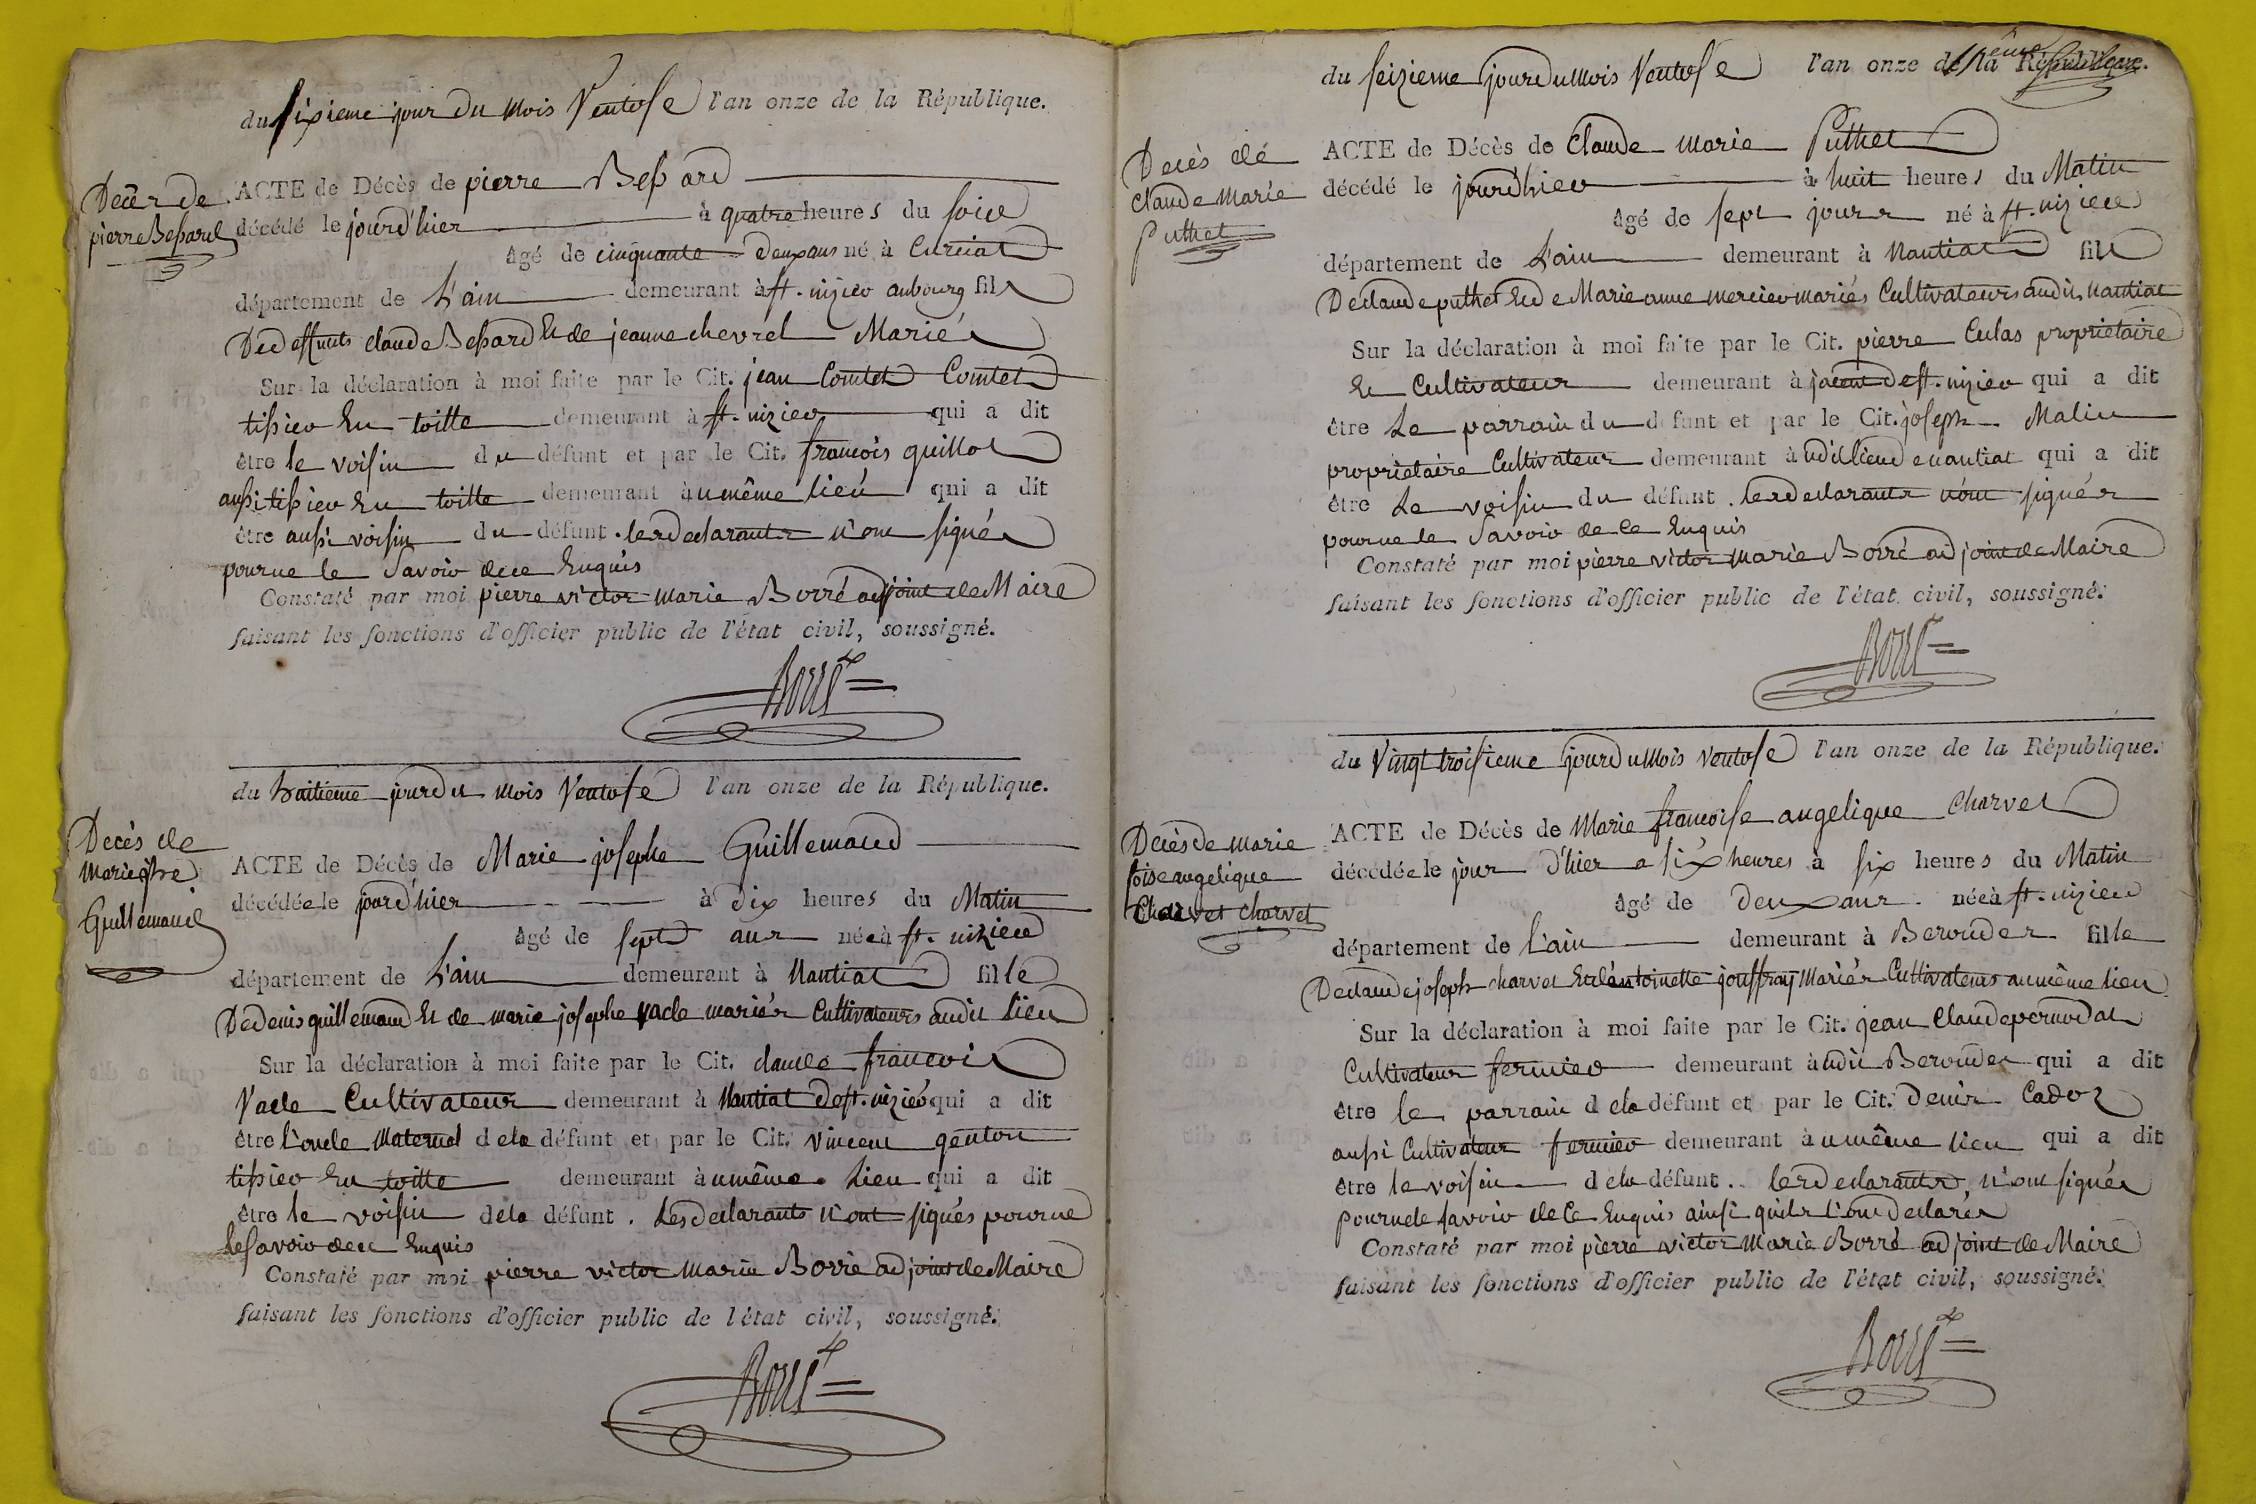 du sixieme jour du mois Ventose l'an onze de la République.
Décèr de
pierre Bessard
ACTE de Décès de pierre Bessard
décédé le jourd'hier à quatre heures du soir
âgé de cinquante deux ans né à Curciat
département de L'ain demeurant à st. nizier au bourg fils
De deffunts claude Bessard Et de jeanne chevrel Mariés
Sur la déclaration à moi faite par le Cit. jean Comtet Comtet
tissier En toille demeurant à st. nizier qui a dit
être le voisin du défunt et par le Cit. francois guillot
aussi tissier En toille demeurant au même lieu qui a dit
être aussi voisin du défunt. les declarants n'ont signés
pour ne le Savoir de ce Enquis
Constaté par moi pierre victor marie Borré adjoint de Maire
faisant les fonctions d'officier public de l'état civil, soussigné.
Borré
du huitième jour du mois Ventose l'an onze de la République.
Decès de
marie jphe
Guillemaud
ACTE de Décès de Marie josephe Guillemaud
décédée le jourd'hier à dix heures du Matin
âgé de sept ans née à st. nizier
département de L'ain demeurant à Nantiat fille
De denis guillemaud Et de marie josephe vacle mariés Cultivateurs audit lieu
Sur la déclaration à moi faite par le Cit. claude francois
Vacle Cultivateur demeurant à Nantiat de st. nizier qui a dit
être L'oncle Maternel dela défunt et par le Cit. vincent genton
tissier En toille demeurant au même Lieu qui a dit
être le voisin dela défunt. Les declarants n'ont signés pour ne
le Savoir de ce Enquis
Constaté par moi pierre victor marie Borré adjoint de Maire
faisant les fonctions d'officier public de l'état civil, soussigné.
Borré
du seizieme jour du mois Ventose l'an onze de la République.
Decès de
claude Marie
Puthet
ACTE de Décès de Claude Marie Puthet
décédé le jourd'hier à huit heures du Matin
âgé de sept jours né à st. nizier
département de L'ain demeurant à Nantiat fils
De claude puthet Et de Marie anne mercier mariés Cultivateurs audit Nantiat
Sur la déclaration à moi faite par le Cit. pierre Culas proprietaire
Et Cultivateur demeurant à de st. nizier qui a dit
être Le parrain du défunt et par le Cit. joseph Malin
propriétaire Cultivateur demeurant audit lieu de nantiat qui a dit
être Le voisin du défunt. les declarants n'ont signés
pour ne le Savoir de Ce Enquis
Constaté par moi pierre victor marie Borré adjoint de Maire
faisant les fonctions d'officier public de l'état civil, soussigné.
Borré
du Vingt troisieme jour du mois Ventose l'an onze de la République.
Decès de marie
foise angelique
Charvet charvet
ACTE de Décès de Marie francoise angelique Charvet
décédée le jour d'hier a six heures à six heures du Matin
âgé de deux ans née à st. nizier
département de L'ain demeurant à Berouder fille
De claude joseph charvet Et d'antoinette jouffray Mariés Cultivateurs au même lieu
Sur la déclaration à moi faite par le Cit. jean Claude pernodat
Cultivateur fermier demeurant audit Berouder qui a dit
être le parrain dela défunt et par le Cit. Denis Cadoz
aussi Cultivateur fermier demeurant au même lieu qui a dit
être le voisin dela défunt. les declarants n'ont signés
pour ne le savoir de Ce Enquis ainsi qu'ils l'ont declarés
Constaté par moi pierre victor Marie Borré adjoint de Maire
faisant les fonctions d'officier public de l'état civil, soussigné.
Borré